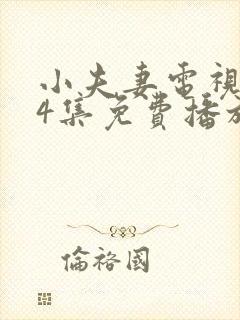 小夫妻電視
4集免費播放
倫裕國